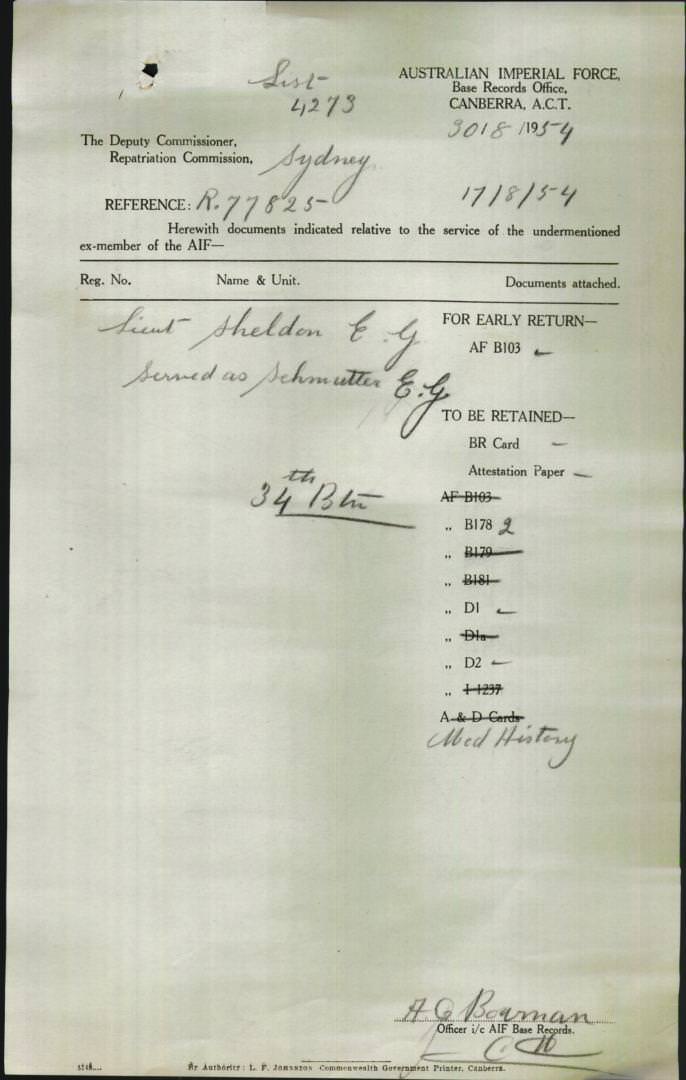 List
4273
AUSTRALIAN IMPERIAL FORCE,
Base Records Office,
CANBERRA, A.C.T.
3018/1954
The Deputy Commissioner,
Repatriation Commission, Sydney
REFERENCE: R.77825 17/8/54
Herewith documents indicated relative to the service of the undermentioned
ex-member of the AIF—
Reg. No. Name & Unit. Documents attached.
Lieut Sheldon E. G
Served as Schmutter E.G
34th Btn
FOR EARLY RETURN—
AF B103
TO BE RETAINED—
BR Card
Attestation Paper
AF B103
„ B178 2
„ B179
„ B181
„ D1
„ D1a
„ D2
„ I 1237
A & D Cards
Med History
A G Bowman
Officer i/c AIF Base Records.
By Authority: L. F. JOHNSTON Commonwealth Government Printer, Canberra.